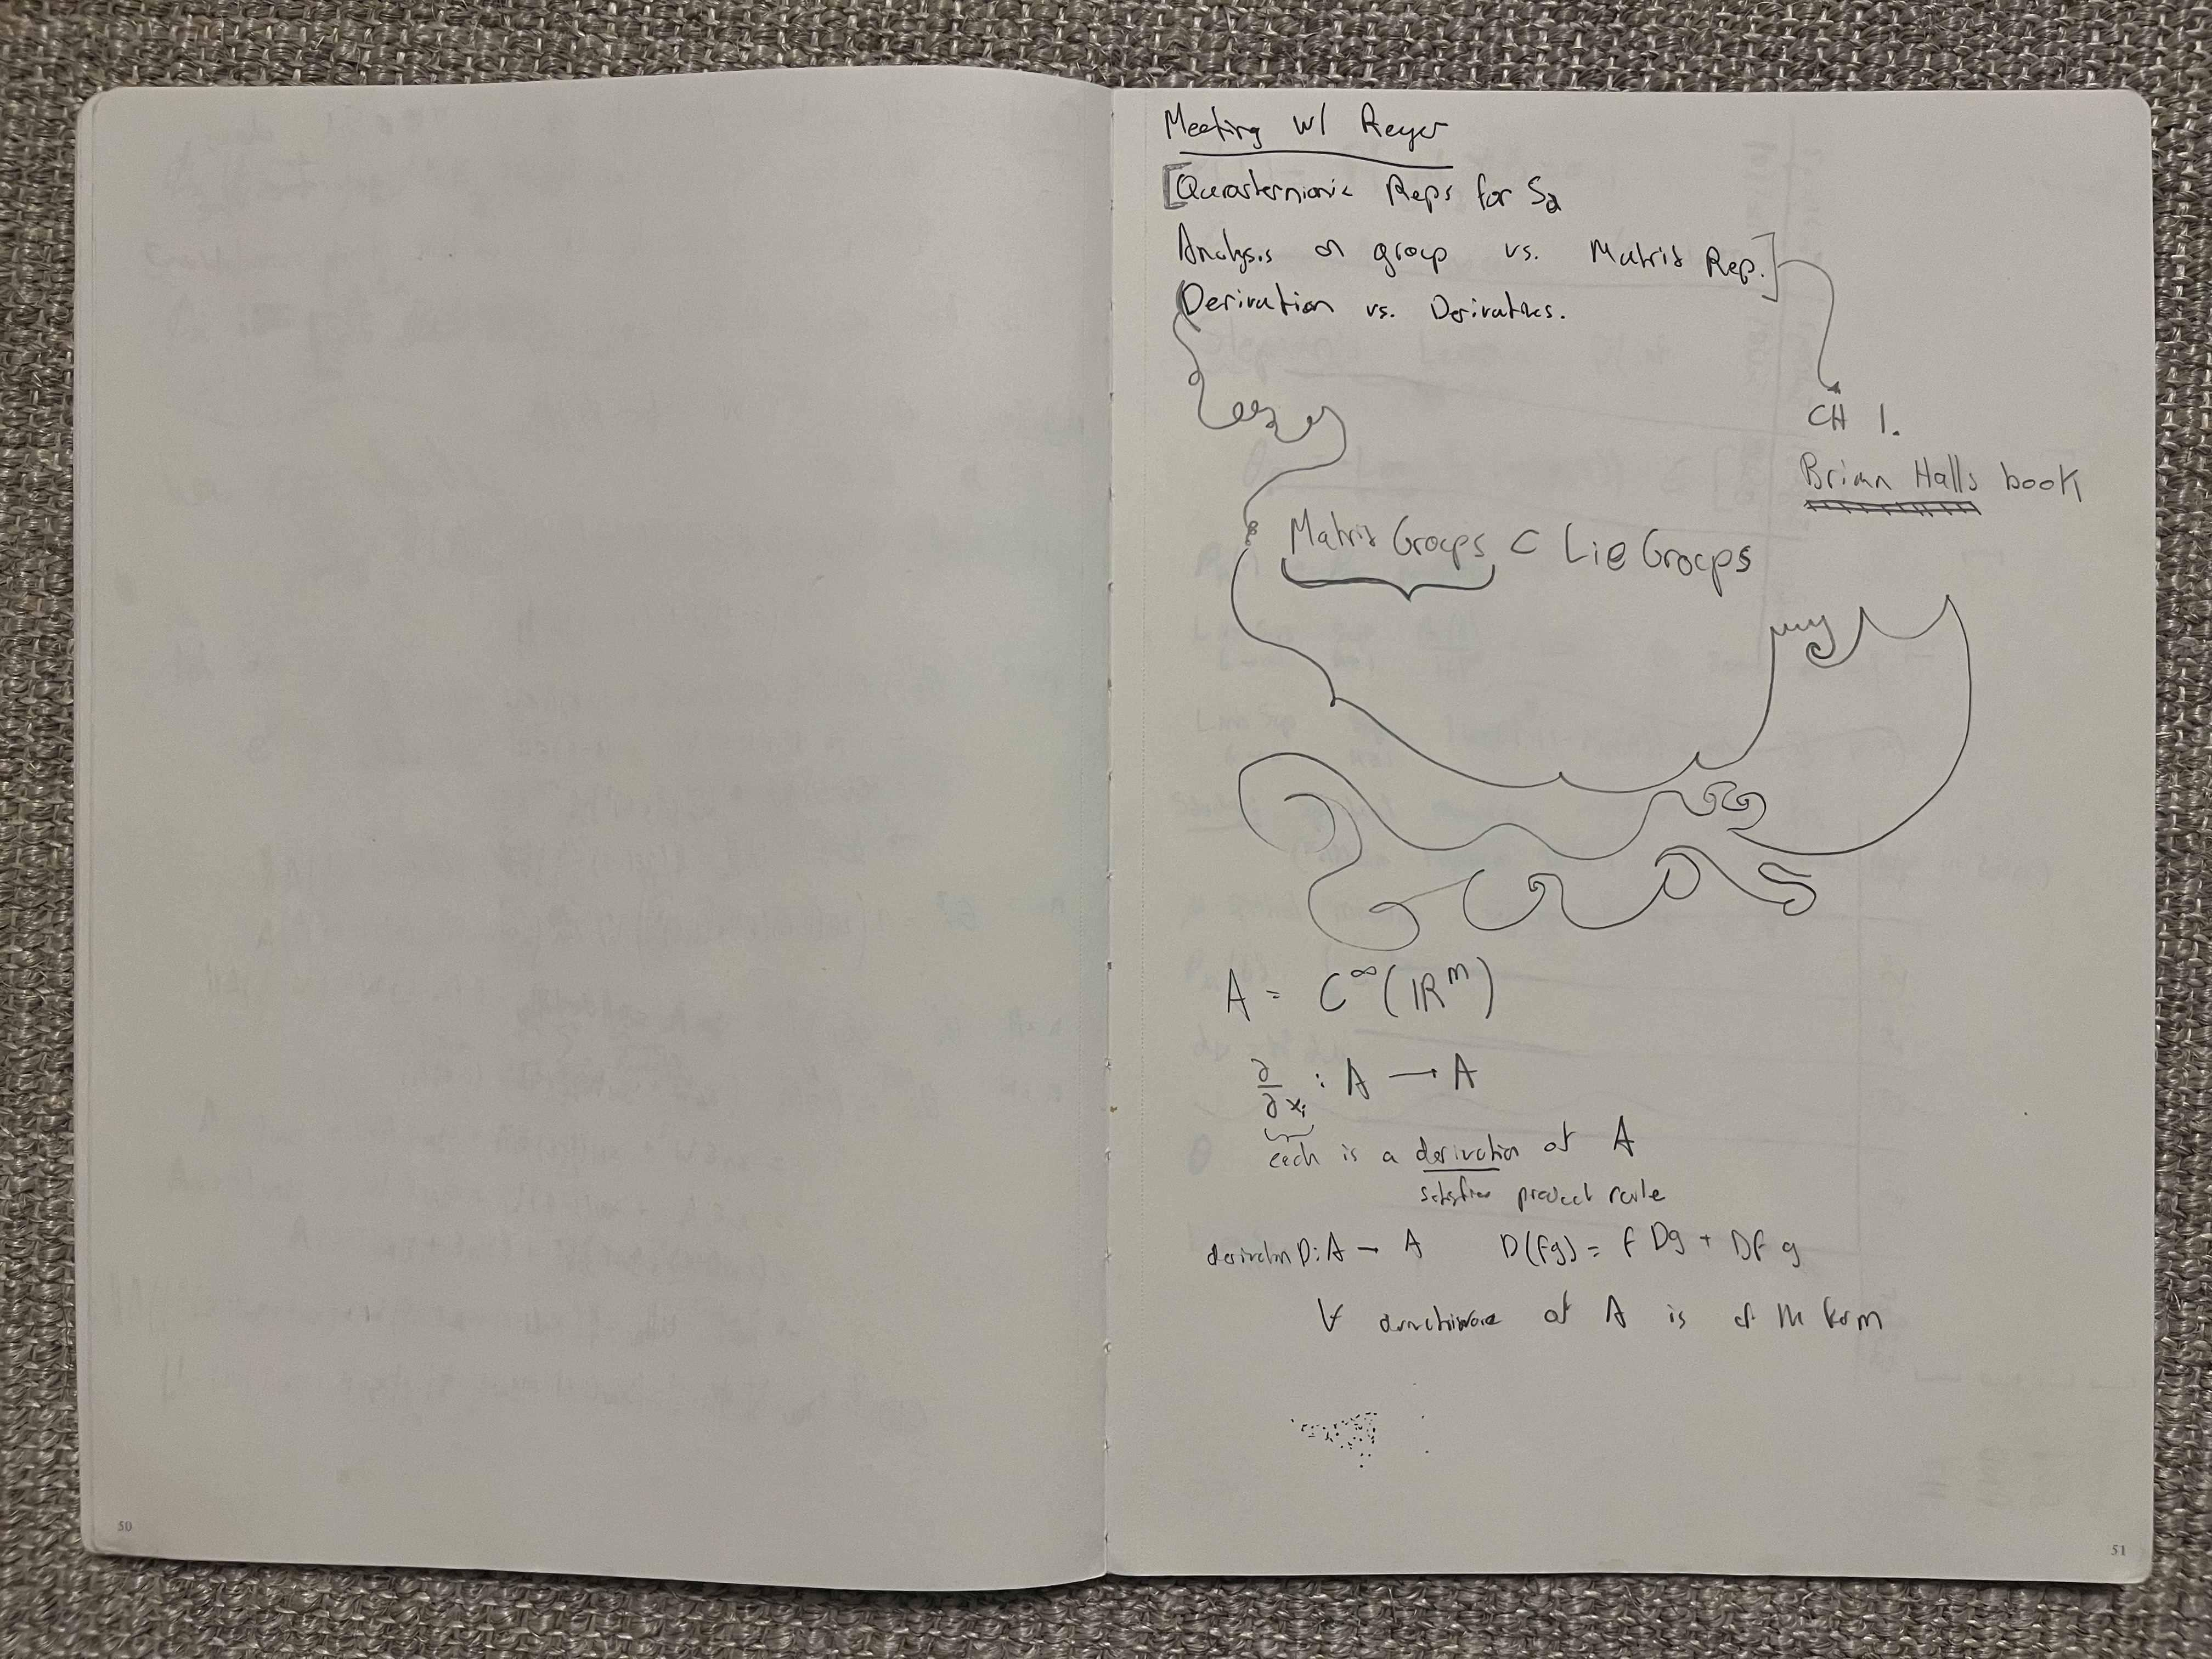 50
51
Meeting w/
[Quaternionic Reps for
Analysis on group vs. Matrix Rep.]
Derivation vs. Derivatives.
CH 1.
Brian Halls book
Matrix Groups ⊂ Lie Groups
A = C^∞(ℝ^m)
∂/∂x_i : A → A
each is a derivation of A
satisfies product rule
derivation D: A → A D(fg) = f Dg + Df g
∀ derivations of A is of the form